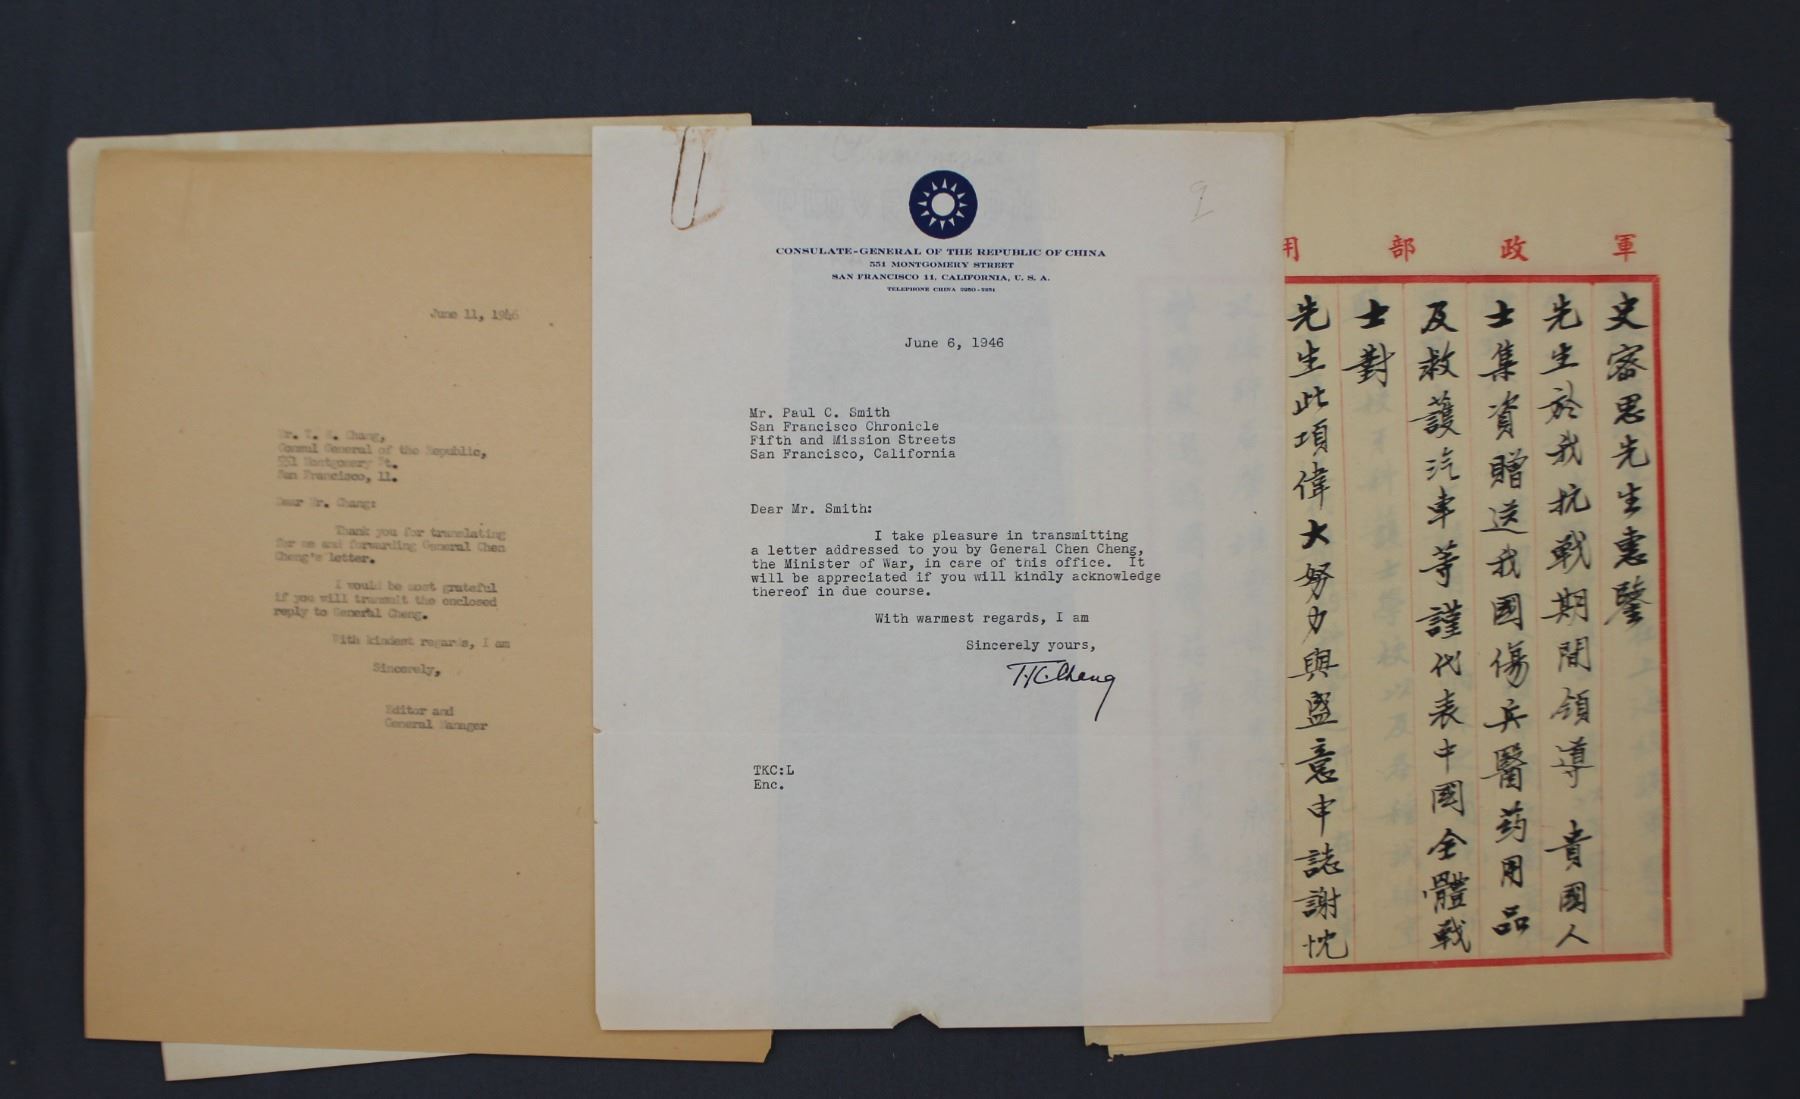 June 11, 1946
Mr. T. K. Chang,
Consul General of the Republic,
551 Montgomery St.
San Francisco, 11.
Dear Mr. Chang:
Thank you for translating
for me and forwarding General Chen
Cheng's letter.
I would be most grateful
if you will transmit the enclosed
reply to General Cheng.
With kindest regards, I am
Sincerely,
Editor and
General Manager
CONSULATE-GENERAL OF THE REPUBLIC OF CHINA
551 MONTGOMERY STREET
SAN FRANCISCO 11, CALIFORNIA, U. S. A.
TELEPHONE CHINA 2250-2251
June 6, 1946
Mr. Paul C. Smith
San Francisco Chronicle
Fifth and Mission Streets
San Francisco, California
Dear Mr. Smith:
I take pleasure in transmitting
a letter addressed to you by General Chen Cheng,
the Minister of War, in care of this office. It
will be appreciated if you will kindly acknowledge
thereof in due course.
With warmest regards, I am
Sincerely yours,
T.K.Chang
TKC:L
Enc.
軍政部用
史密思先生惠鑒
先生於我抗戰期間領導 貴國人
士集資贈送我國傷兵醫药用品
及救護汽車等謹代表中國全體戰
士對
先生此項偉大努力與盛意申誌謝忱